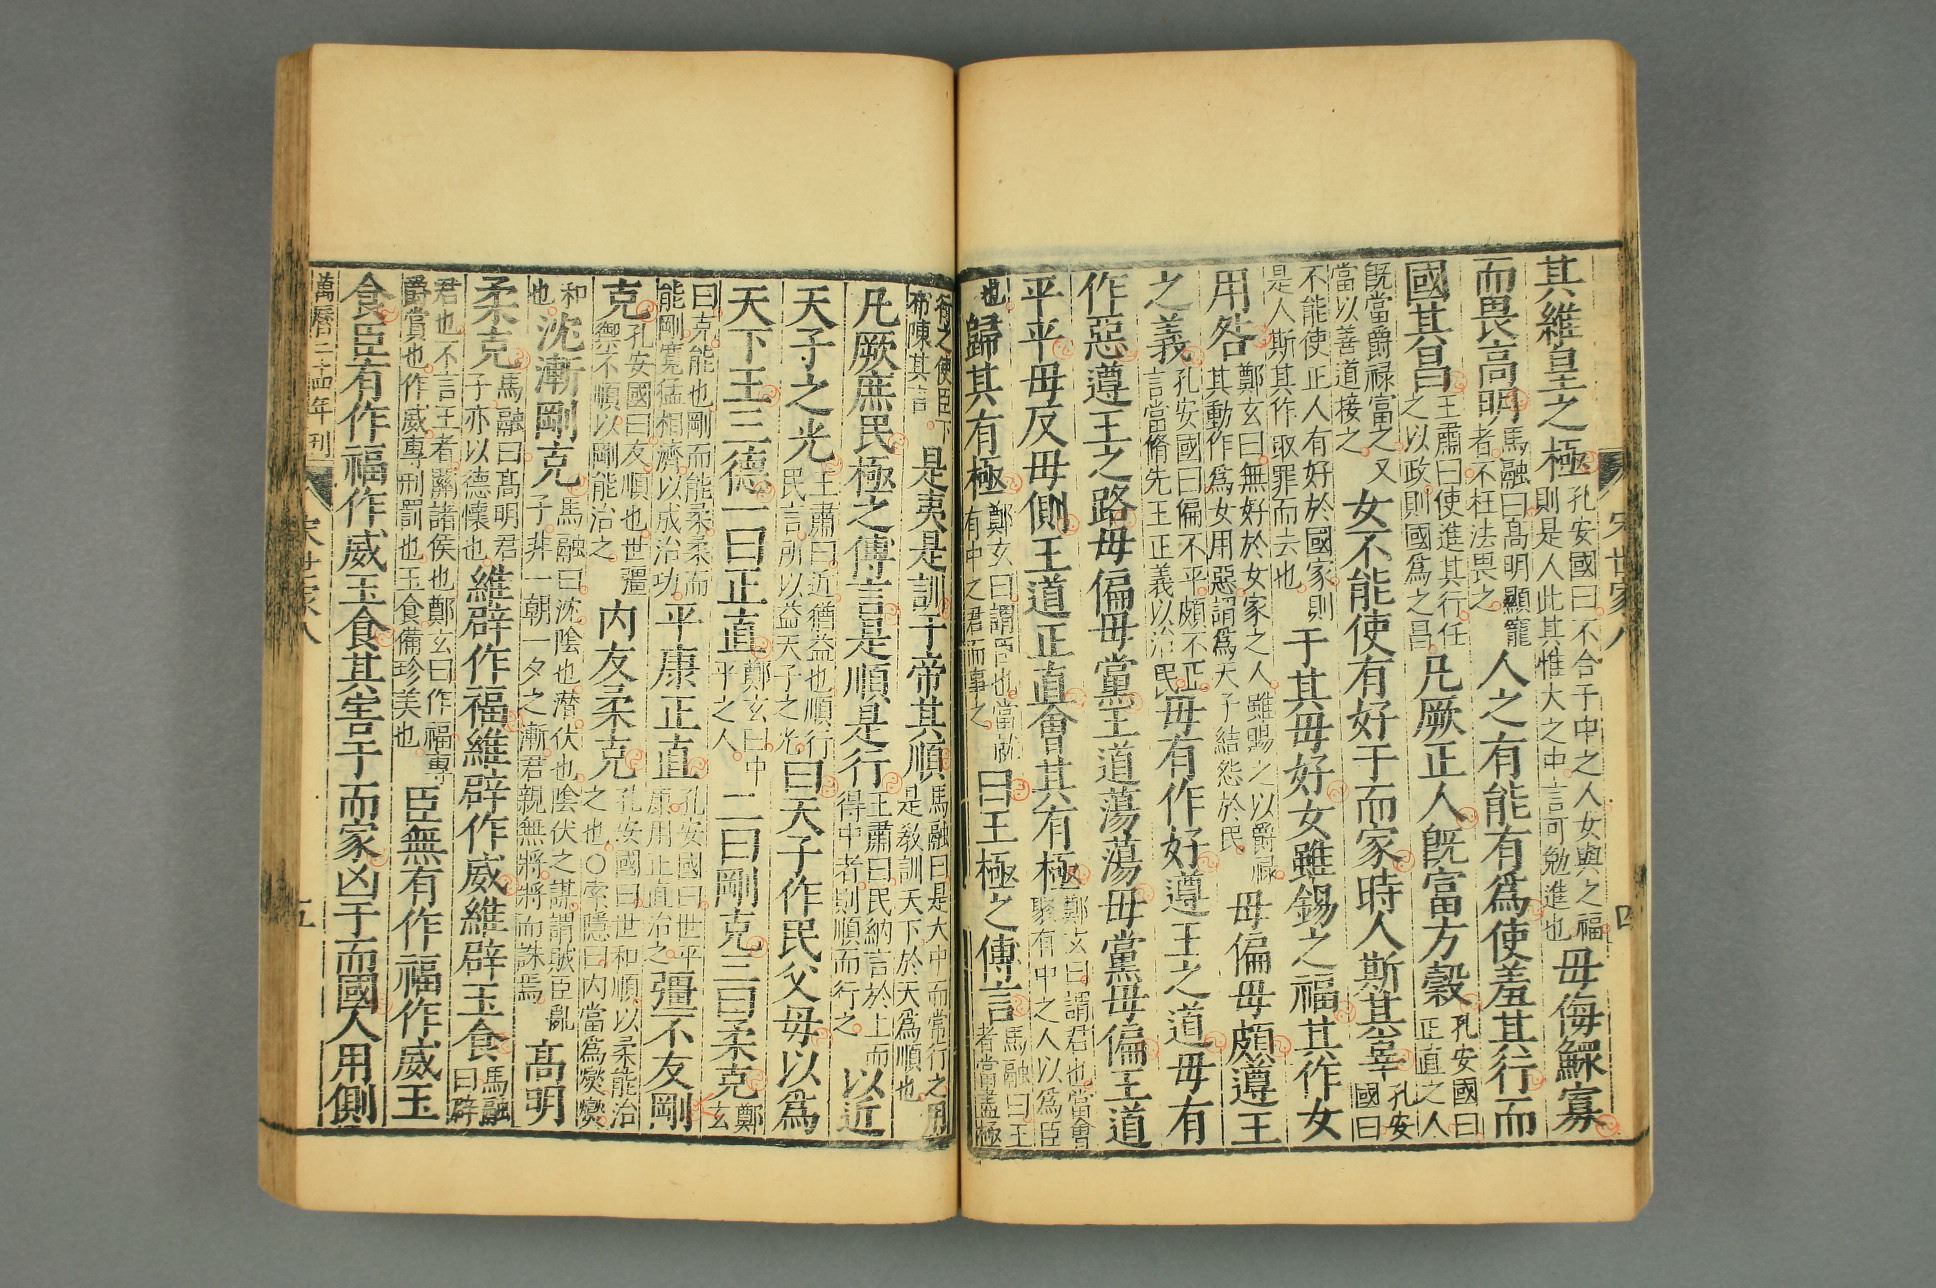 宋世家八　四
其維皇之極孔安國曰不合于中之人女與之福則是人此其惟大之中言可勉進也毋侮鰥寡
而畏高明馬融曰高明顯寵者不枉法畏之人之有能有爲使羞其行而
國其昌王肅曰使進其行任之以政則國爲之昌凡厥正人旣富方穀孔安國曰正直之人
旣當爵祿富之又當以善道接之女不能使有好于而家時人斯其辜孔安國曰
不能使正人有好於國家則是人斯其作取罪而去也于其毋好女雖錫之福其作女
用咎鄭玄曰無好於女家之人雖賜之以爵祿其動作爲女用惡謂爲天子結怨於民毋偏毋頗遵王
之義孔安國曰偏不平頗不正言當脩先王正義以治民毋有作好遵王之道毋有
作惡遵王之路毋偏毋黨王道蕩蕩毋黨毋偏王道
平平毋反毋側王道正直會其有極鄭玄曰謂君也當會聚有中之人以爲臣
也歸其有極鄭玄曰謂臣也當就有中之君而事之曰王極之傅言馬融曰王者當盡極
行之使臣下布陳其言是夷是訓于帝其順馬融曰是大中而常行之用是敎訓天下於天爲順也
凡厥庶民極之傅言是順是行王肅曰民納言於上而得中者則順而行之以近
天子之光王肅曰近猶益也順行民言所以益天子之光曰天子作民父母以爲
天下王三德一曰正直鄭玄曰中平之人二曰剛克三曰柔克鄭玄
曰克能也剛而能柔柔而能剛寬猛相濟以成治功平康正直孔安國曰世平康用正直治之彊不友剛
克孔安國曰友順也世彊禦不順以剛能治之内友柔克孔安國曰世和順以柔能治之也○索隱曰内當爲燮燮
和也沈漸剛克馬融曰沈陰也潛伏也陰伏之謀謂賊臣亂子非一朝一夕之漸君親無將將而誅焉高明
柔克馬融曰高明君子亦以德懷也維辟作福維辟作威維辟玉食馬融曰辟
君也不言王者關諸侯也鄭玄曰作福專爵賞也作威專刑罰也玉食備珍美也臣無有作福作威玉
食臣有作福作威玉食其害于而家凶于而國人用側
萬曆二十四年刊　宋世家八　五